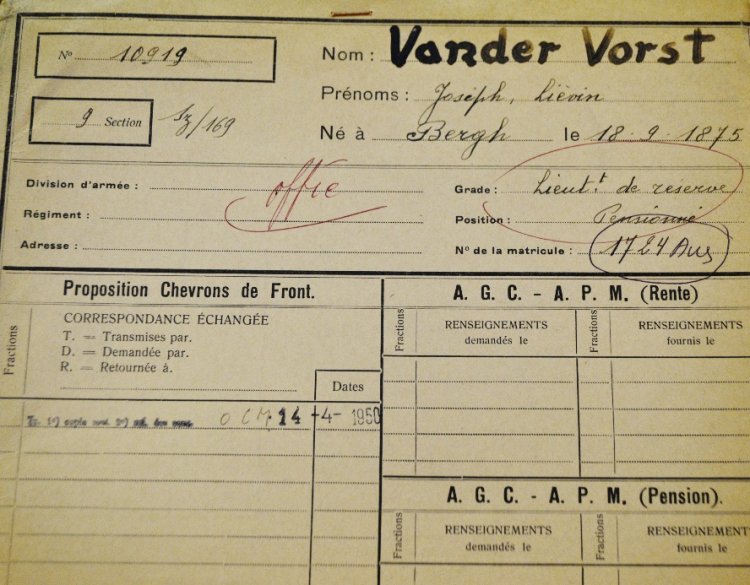 Nº 10919
Nom : Vander Vorst
Prénoms : Joséph, Liévin
9 Section
/169
Né à Bergh le 18-9-1875
Division d'armée :
offic
Grade : Lieut.t de reserve
Régiment :
Position : Pensionné
Adresse :
Nº de la matricule : 1724
Proposition Chevrons de Front.
CORRESPONDANCE ÉCHANGÉE
T. = Transmises par.
D. = Demandée par.
R. = Retournée à.
Fractions
Dates
O C M 14-4-1950
A. G. C. - A. P. M. (Rente)
Fractions
RENSEIGNEMENTS
demandés le
Fractions
RENSEIGNEMENTS
fournis le
A. G. C. - A. P. M. (Pension).
Fractions
RENSEIGNEMENTS
demandés le
Fractions
RENSEIGNEMEN
fournis le